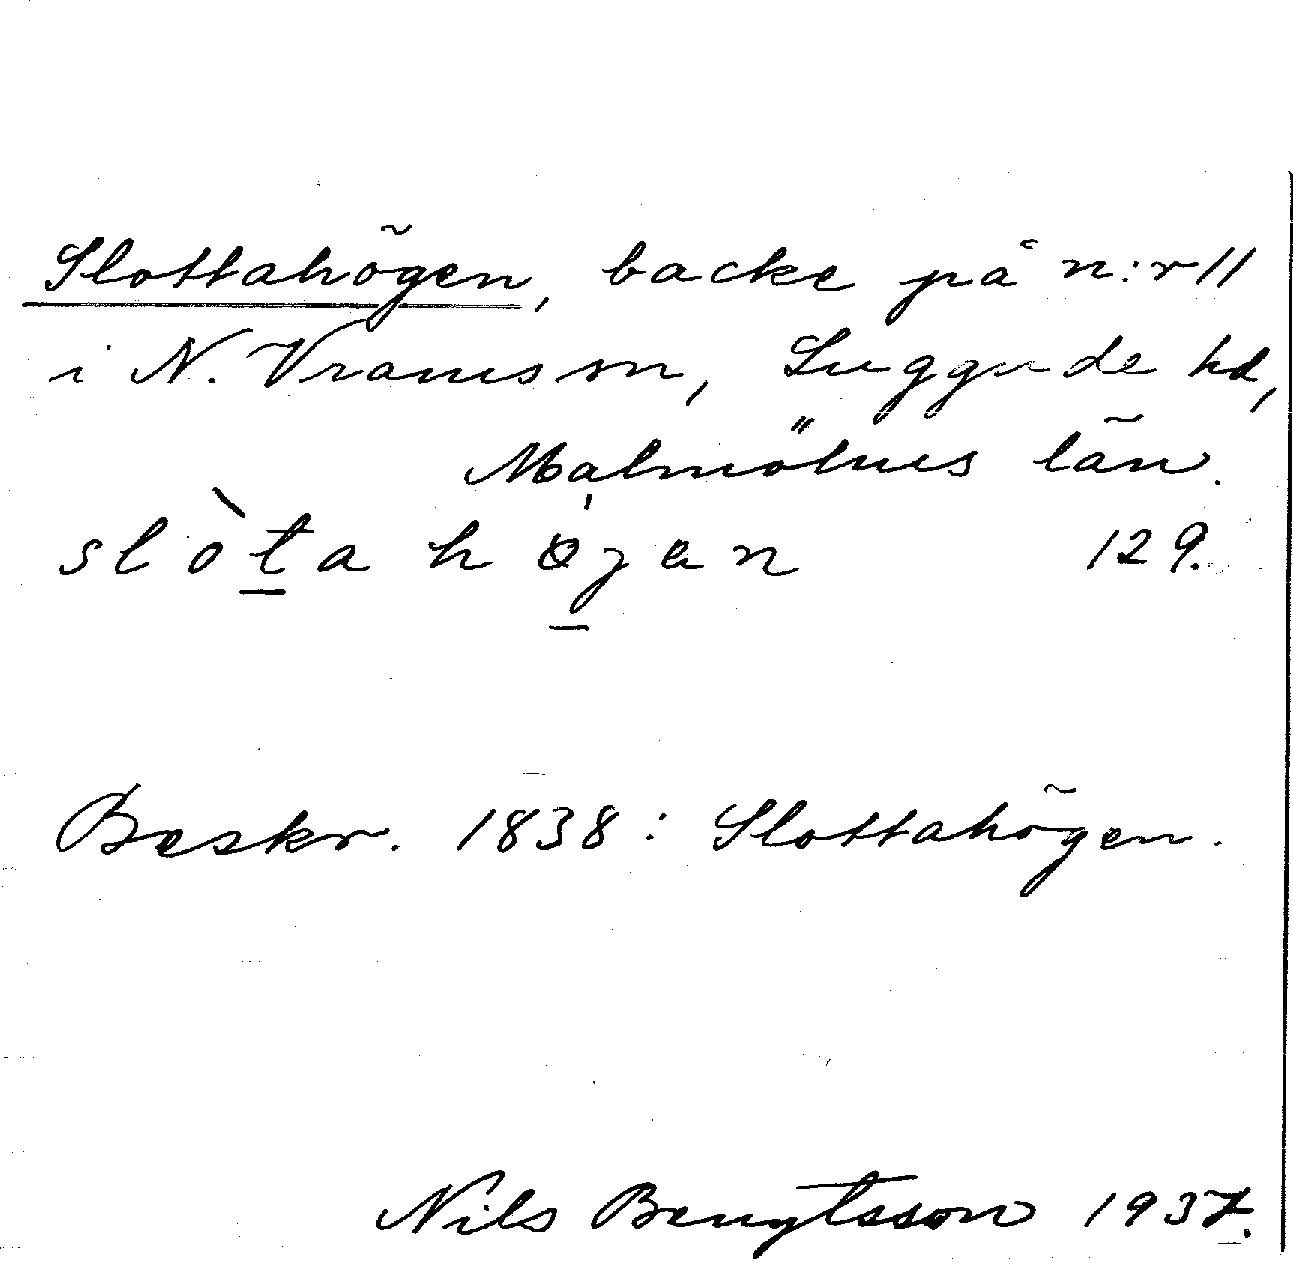 Slottahögen, backe på n:r 11
i N. Vrams sn, Luggude hd,
Malmöhus län.
slòta højen 129.
Beskr. 1838: Slottahögen.
Nils Bengtsson 1937.